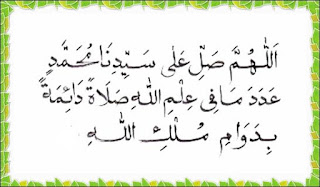 اَللّٰهُمَّ صَلِّ عَلٰى سَيِّدِنَا مُحَمَّدٍ
عَدَدَ مَا فِى عِلْمِ اللهِ صَلَاةً دَائِمَةً
بِدَوَامِ مُلْكِ اللهِ